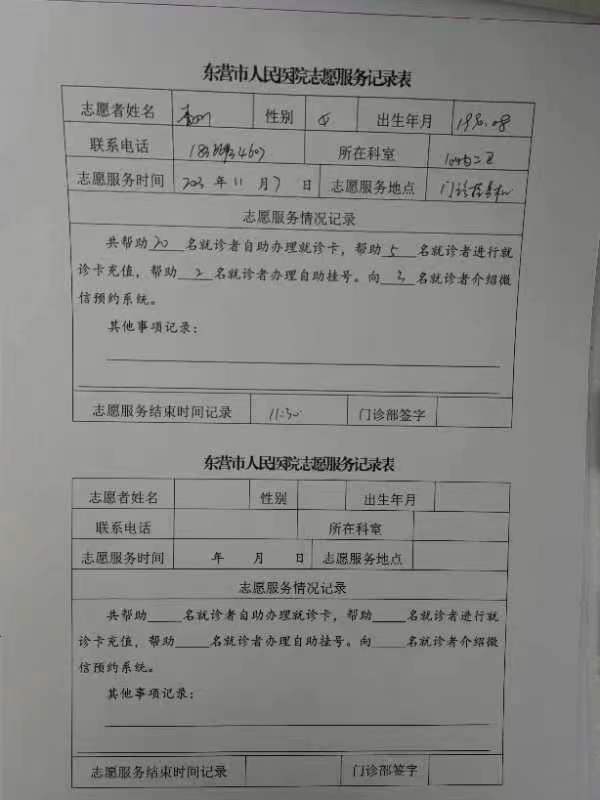 东营市人民医院志愿服务记录表
志愿者姓名 性别 女 出生年月 1990.08
联系电话 所在科室
志愿服务时间 2023 年 11 月 7 日 志愿服务地点 门诊
志愿服务情况记录
共帮助 20 名就诊者自助办理就诊卡，帮助 5 名就诊者进行就
诊卡充值，帮助 2 名就诊者办理自助挂号。向 3 名就诊者介绍微
信预约系统。
其他事项记录：
志愿服务结束时间记录 11:30 门诊部签字
东营市人民医院志愿服务记录表
志愿者姓名 性别 出生年月
联系电话 所在科室
志愿服务时间 年 月 日 志愿服务地点
志愿服务情况记录
共帮助____名就诊者自助办理就诊卡，帮助____名就诊者进行就
诊卡充值，帮助____名就诊者办理自助挂号。向____名就诊者介绍微
信预约系统。
其他事项记录：
志愿服务结束时间记录 门诊部签字